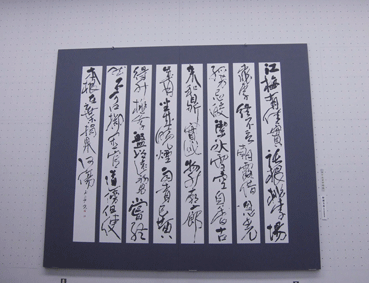 江梅有佳實託根桃李場
桃李終不言朝露借恩光
孤芳忌皎潔冰雪空自香古
來和鼎實此物升廟廊
歲月坐成晚煙雨青已黃
得升桃李盤以遠初見嘗終
然不可口擲置官道傍但使
本根在棄捐果何傷